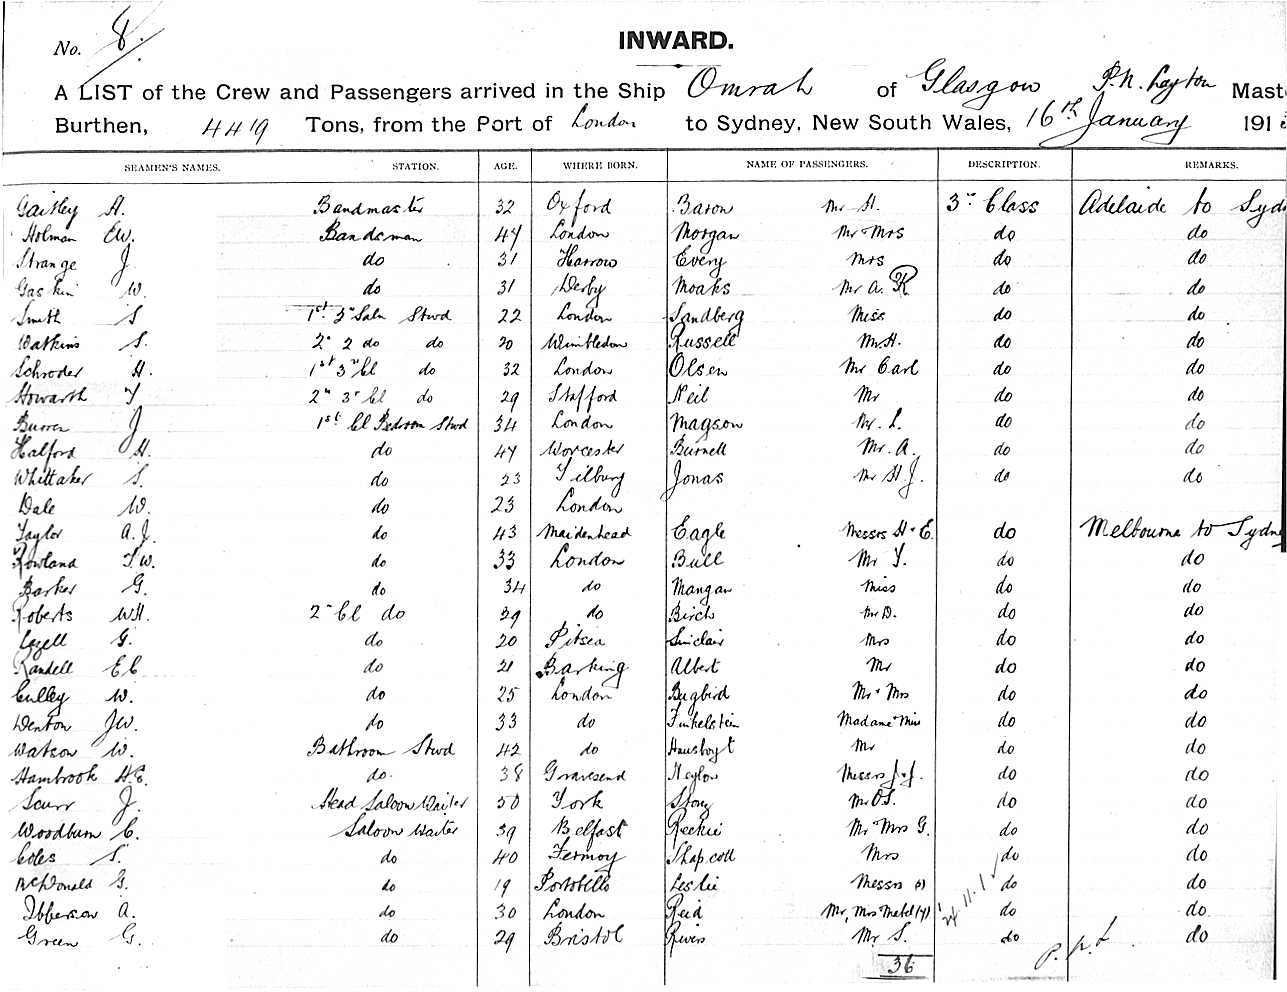 No. 8. INWARD.
A LIST of the Crew and Passengers arrived in the Ship Omrah of Glasgow P.N. Layton Mast
Burthen, 4419 Tons, from the Port of London to Sydney, New South Wales, 16th January 191
SEAMEN'S NAMES. STATION. AGE. WHERE BORN. NAME OF PASSENGERS. DESCRIPTION. REMARKS.
Gaisley H. Bandmaster 32 Oxford Baron Mr H. 3rd Class Adelaide to Syd
Holman EW. Bandsman 47 London Morgan Mr Mrs do do
Strange J do 31 Harrow Every Mrs do do
Gaskin W. do 31 Derby Moaks Mr A. R do do
Smith S 1st 3r Saln Stwd 22 London Sandberg Miss do do
Watkins S. 2n 2 do do 20 Wimbledon Russell Mr H. do do
Schroder H. 1st 3r Cl do 32 London Olsen Mr Carl do do
Howarth T 2n 3r Cl do 29 Stafford Neil Mr do do
J 1st Cl Bedroom Stwd 34 London Magson Mr. L. do do
Halford H. do 47 Worcester Burnell Mr. A. do do
Whittaker S. do 23 Tilbury Jonas Mr H.J. do do
Dale W. do 23 London
Taylor A.J. do 43 Maidenhead Eagle Messrs H+E. do Melbourne to Sydne
Rowland T.W. do 33 London Bull Mr T. do do
Barker G. do 34 do Mangan Miss do do
Roberts WH. 2n Cl do 29 do Birch Mr D. do do
G. do 20 Pitsea Sinclair Mrs do do
Randell EC do 21 Barking Albert Mr do do
Culley W. do 25 London Bugbird Mr + Mrs do do
Denton JW. do 33 do Finkelstein Madame + Miss do do
Watson W. Bathroom Stwd 42 do Mr do do
Hambrook H.E. do. 38 Gravesend Heylon Messrs J+J. do do
Scurr J. Head Saloon Waiter 50 York Story Mr O.S. do do
Woodburn C. Saloon Waiter 39 Belfast Reekie Mr Mrs G. do do
Coles S. do 40 Fermoy Shapcott Mrs do do
McDonald G. do 19 Portobello Leslie Messrs do do
Ibberson A. do 30 London Reid Mr, Mrs Mabel (4) do do
Green G. do 29 Bristol Rivers Mr. S. do do
36